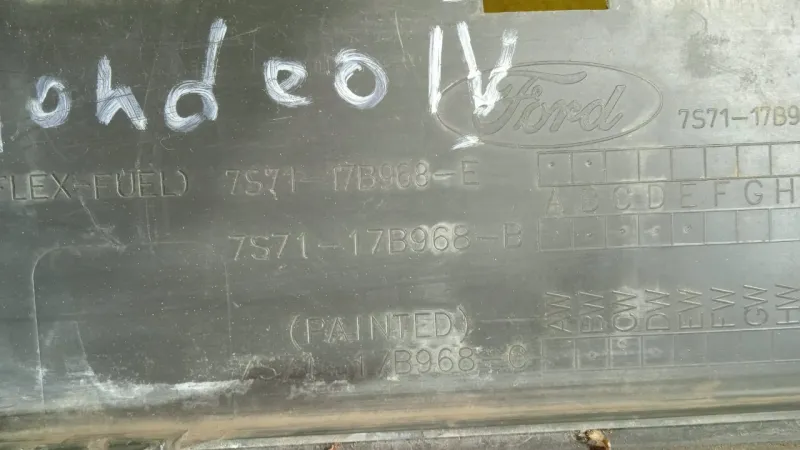 ondeo IV
Ford
7S71-17B9
FLEX-FUEL) 7S71-17B968-E
A B C D E F G H
7S71-17B968-B
(PAINTED)
7S71-17B968-C
AW BW CW DW EW FW GW HW